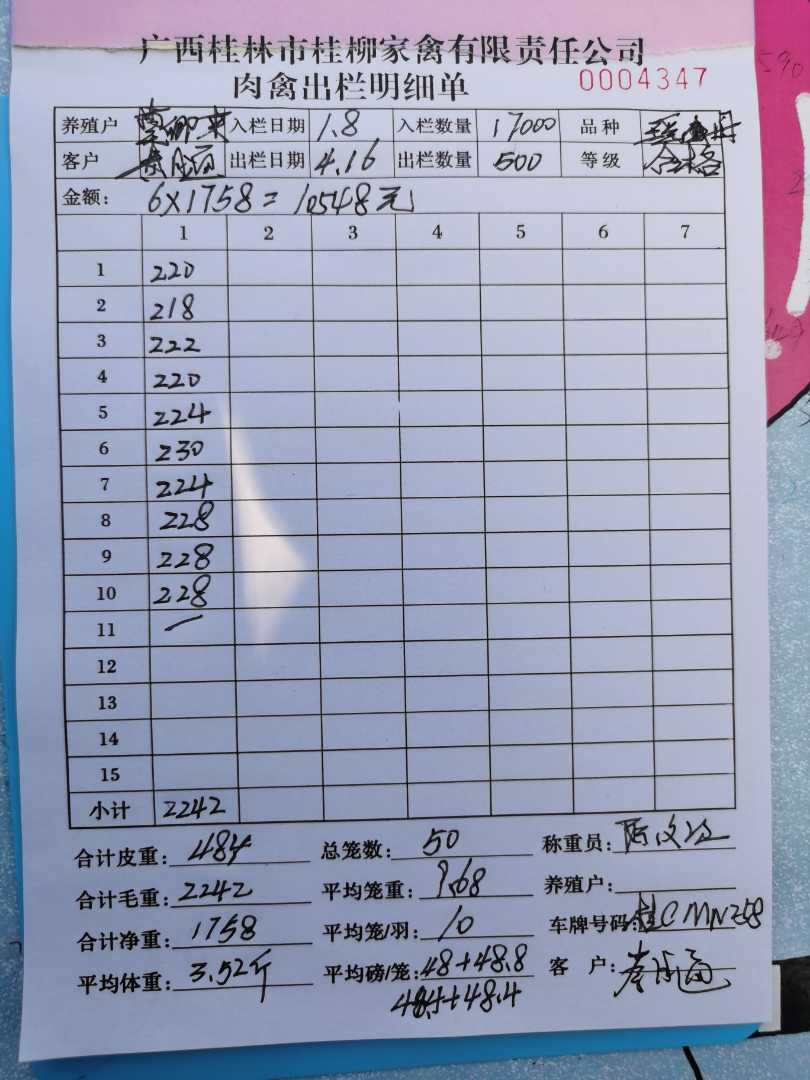 广西桂林市桂柳家禽有限责任公司
肉禽出栏明细单 0004347
养殖户 入栏日期 1.8 入栏数量 17000 品种
客户 出栏日期 4.16 出栏数量 500 等级 合格
金额: 6X1758=10548元
1 2 3 4 5 6 7
1 220
2 218
3 222
4 220
5 224
6 230
7 224
8 228
9 228
10 228
11 一
12
13
14
15
小计 2242
合计皮重: 484 总笼数: 50 称重员:
合计毛重: 2242 平均笼重: 9.68 养殖户:
合计净重: 1758 平均笼/羽: 10 车牌号码: 桂CMNZ58
平均体重: 3.52斤 平均磅/笼: 48+48.8 客户:
48.4+48.4